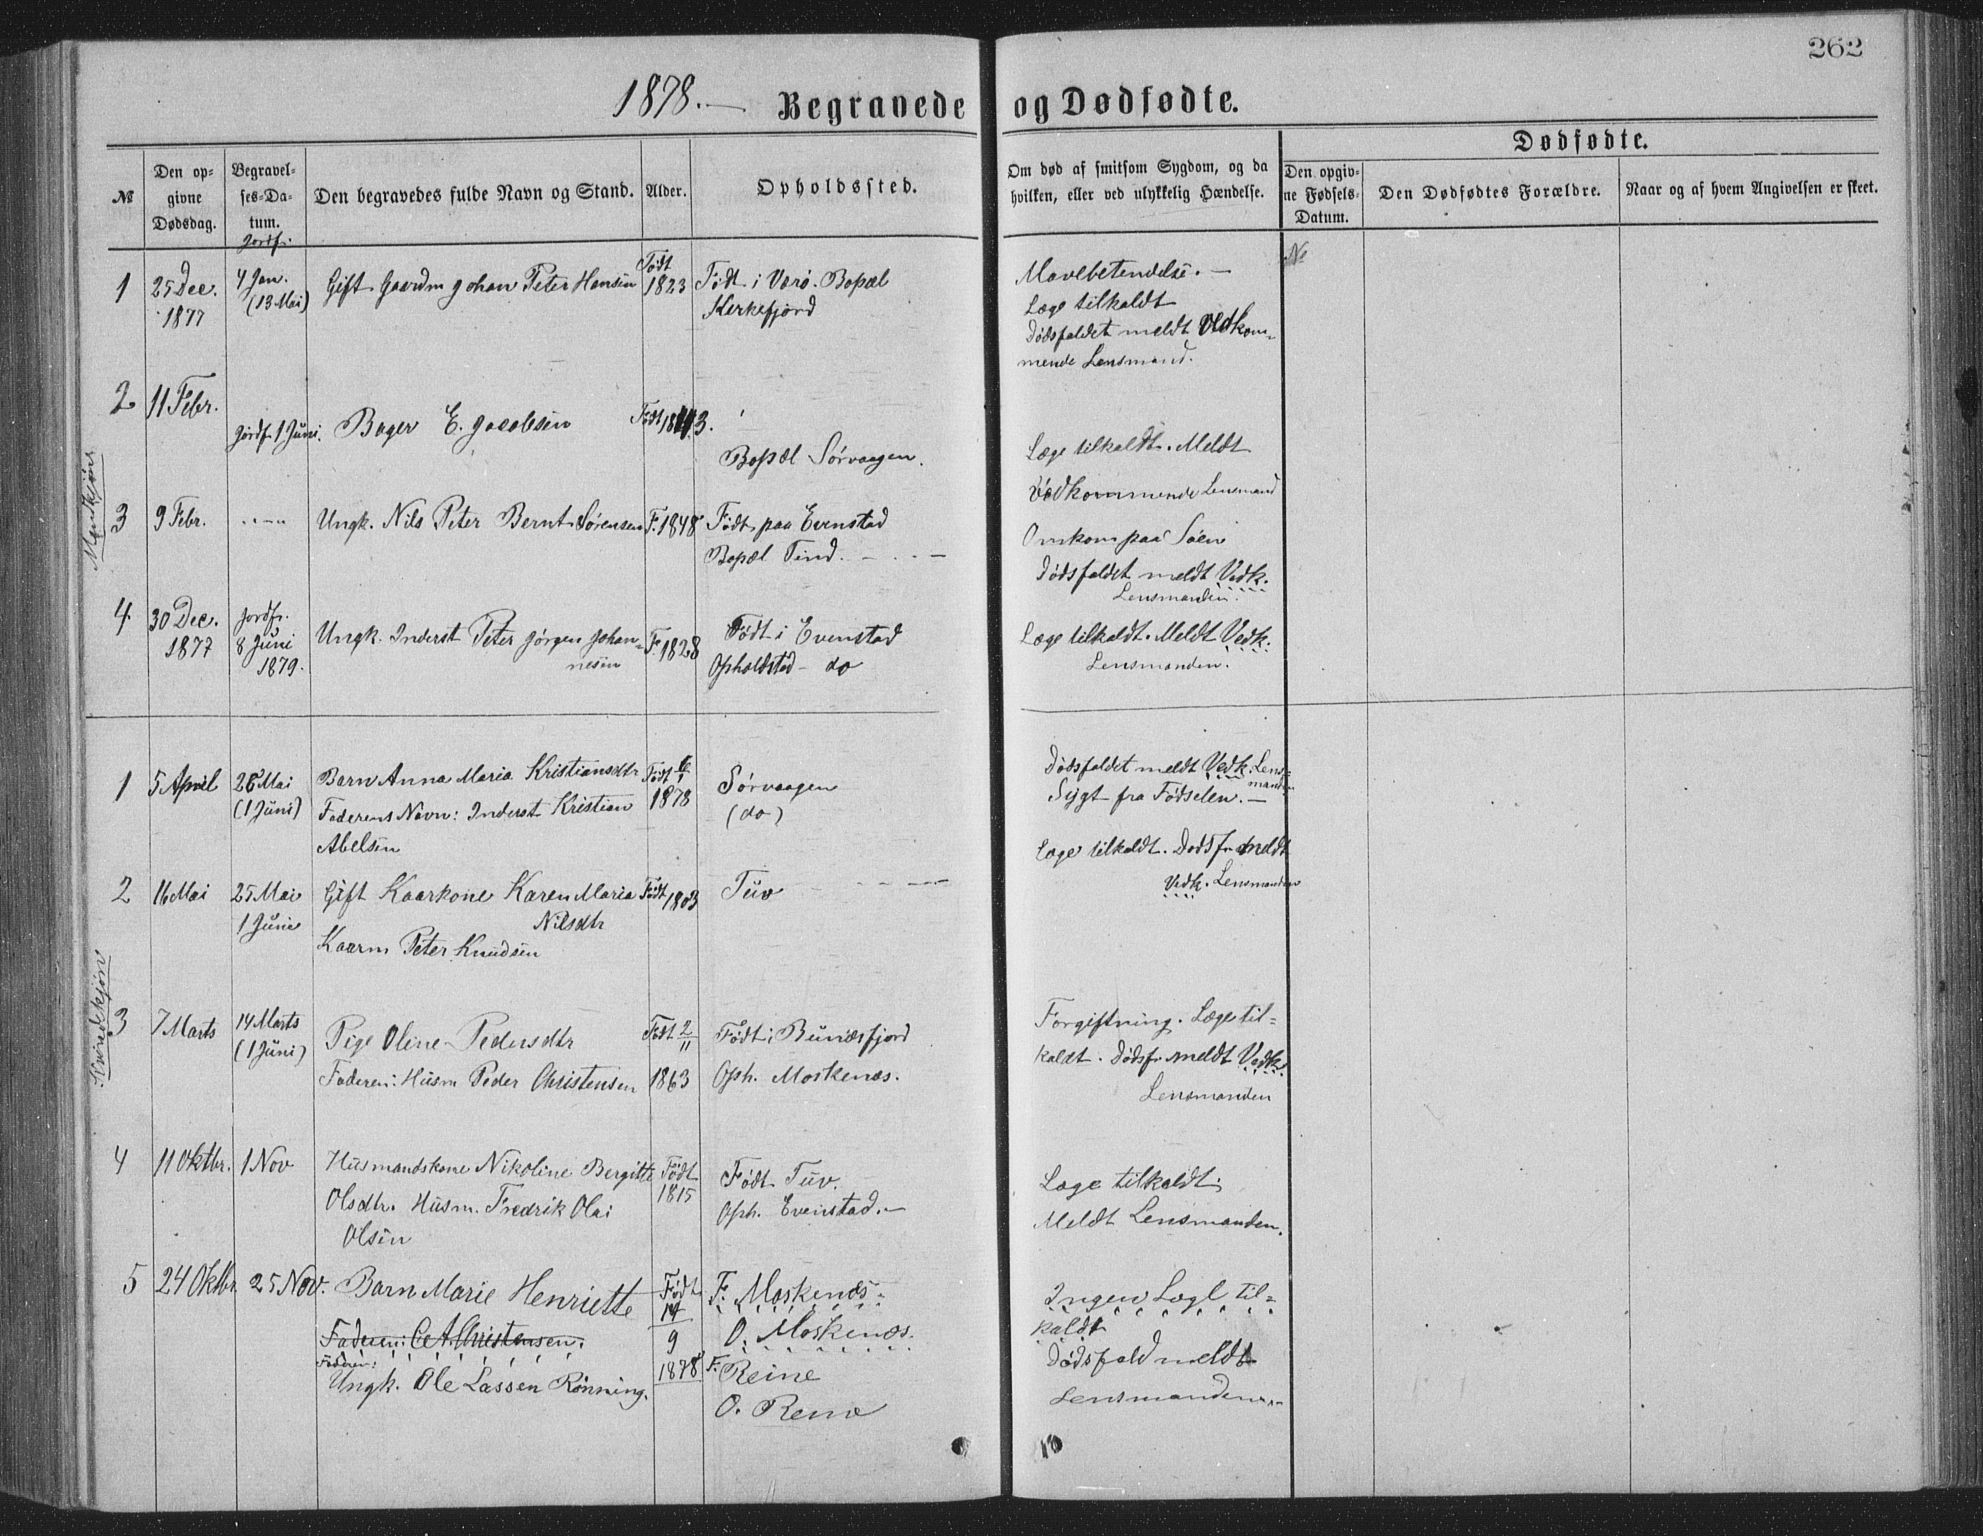 262
1878.— Begravede og Dødfødte.
Dødfødte.
№
Den op-
givne
Dødsdag.
Begravel-
ses-Da-
tum.
Jordf.
Den begravedes fulde Navn og Stand.
Alder.
Opholdssted.
Om død af smitsom Sygdom, og da
hvilken, eller ved ulykkelig Hændelse.
Den opgiv-
ne Fødsels-
Datum.
Den Dødfødtes Forældre.
Naar og af hvem Angivelsen er skeet.
Mandkjøn
1
25 Dec.
1877
4 Jan.
(13 Mai)
Gift Gaardm Johan Peter Hansen
Født
1823
Født i Værø. Bopæl
Kerkefjord
Mavebetendelse. —
Læge tilkaldt
Dødsfaldet meldt Vedkom-
mende Lensmand.
2
11 Febr.
Jordf. 1 Juni.
Bager E. Jacobsen
Født 1843.
Bopæl Sørvaagen.
Læge tilkaldt. Meldt
Vedkommende Lensmand
3
9 Febr.
Ungk. Nils Peter Bernt Sørensen
F. 1848
Født paa Evenstad
Bopæl Tind. —
Omkom paa Søen
Dødsfaldet meldt Vedk.
Lensmanden.
4
30 Dec.
1877
Jordf.
8 Juni
1879.
Ungk. Inderst Peter Jørgen Johan-
nesen
F. 1828
Født i Evenstad
Opholdsted — do
Læge tilkaldt. Meldt Vedk.
Lensmanden.
Kvindekjøn
1
5 April
26 Mai
(1 Juni)
Barn Anna Maria Kristiansdtr
Faderens Navn: Inderst Kristian
Abelsen
Født
1878
Sørvaagen
(do)
Dødsfaldet meldt Vedk. Lens-
manden
Sygt fra Fødselen. —
2
16 Mai
25 Mai
1 Juni
Gift Kaarkone Karen Maria
Nilsdtr
Kaarm Peter Knudsen
Født 1803
Tuv
Læge tilkaldt. Dødsf. meldt
Vedk. Lensmanden
3
7 Marts
14 Marts
(1 Juni)
Pige Oline Pedersdtr
Faderen: Husm Peder Christensen
Født 2/11
1863
Født i Bunæsfjord
Oph. Moskenæs.
Forgiftning. Læge til-
kaldt. Dødsf. meldt Vedk.
Lensmanden
4
11 Oktbr.
1 Nov
Husmandskone Nikoline Bergitte
Olsdtr. Husm. Fredrik Olai
Olsen
Født
1815
Født Tuv.
Oph. Evenstad. —
Læge tilkaldt.
Meldt Lensmanden.
5
24 Oktbr
25 Nov.
Barn Marie Henriette
Faderen: C. A. Christensen.
Faderen:
Ungk. Ole Lassen Rønning.
Født
14
9
1878
F. Moskenæs.
O. Moskenæs.
F. Reine
O. Reine
Ingen Læge til-
kaldt
Dødsfald meldt
Lensmanden.